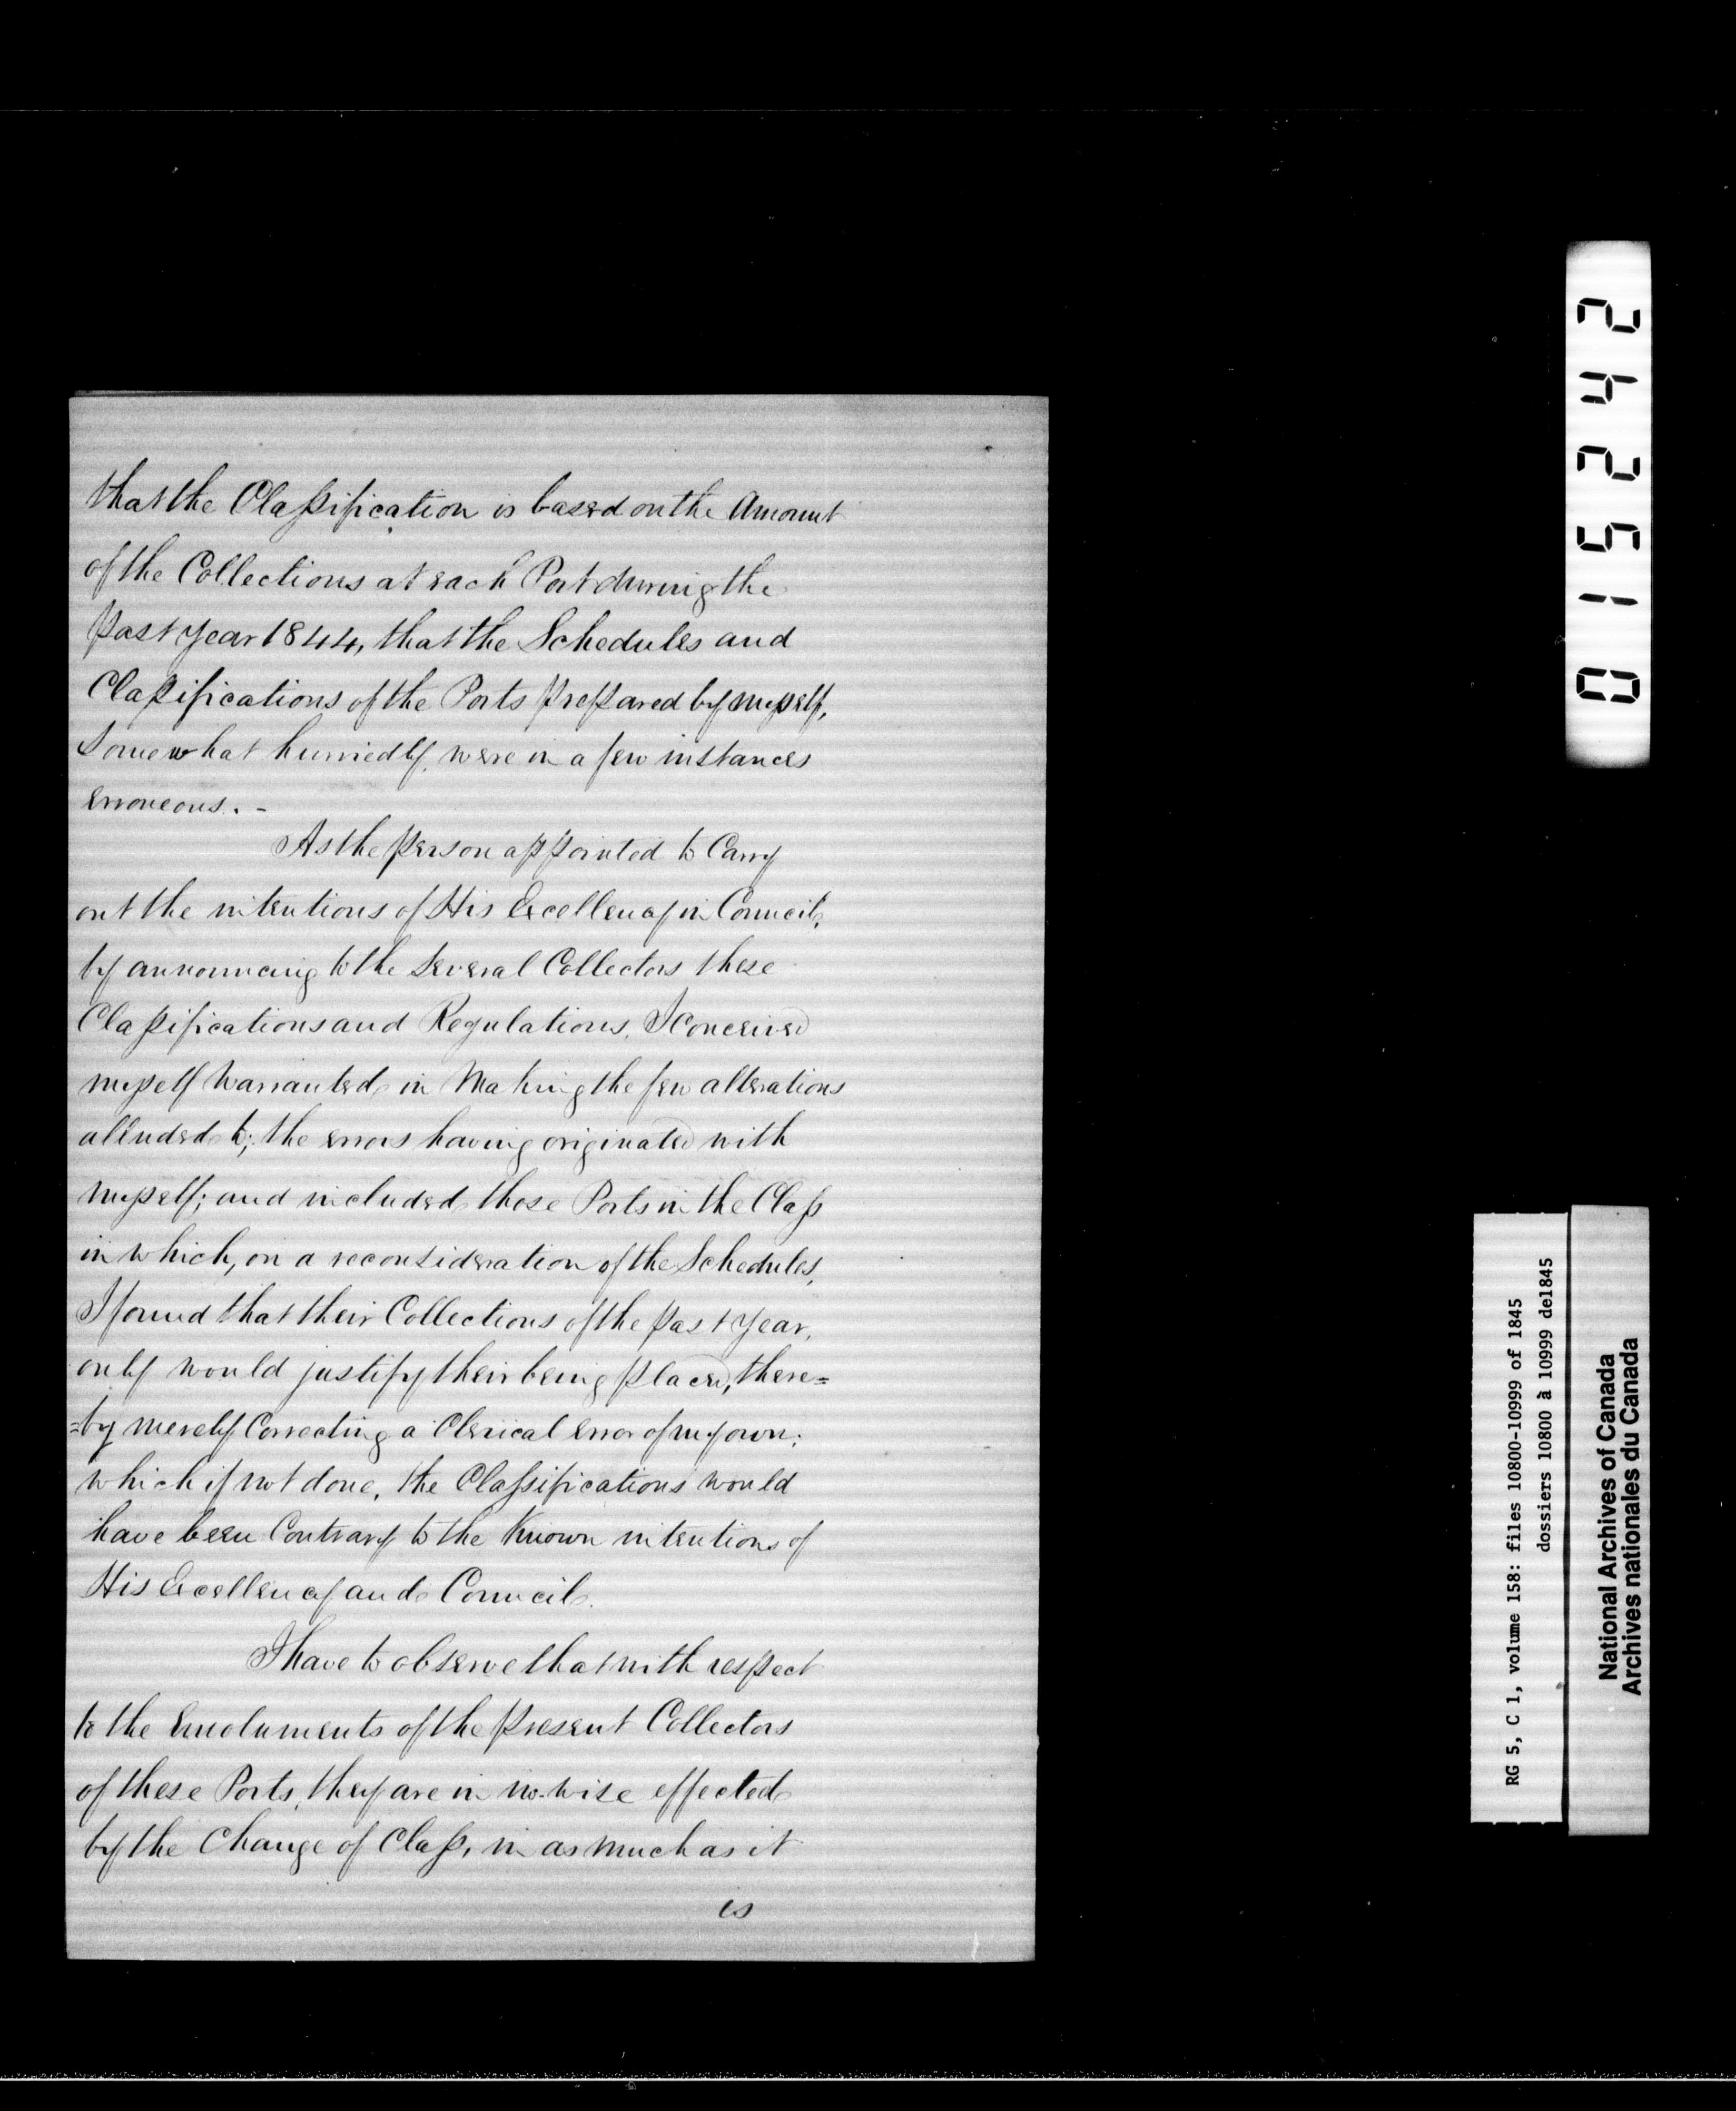 that the Claſsification is based on the Amount
of the Collections at each Port during the
past year 1844, that the Schedules and
Claſsifications of the Ports prepared by myself,
Somewhat hurriedly, were in a few instances
erroneous. -
As the person appointed to Carry
out the intentions of His Excellency in Council,
by announcing to the Several Collectors these
Claſsifications and Regulations, I conceived
myself Warranted in Making the few alterations
alluded to; the errors having originated with
myself; and included those Ports in the Claſs
in which, on a reconsideration of the Schedules,
I found that their Collections of the past year,
only would justify their being placed, there=
=by merely Correcting a Clerical error of my own;
which if not done, the Claſsifications would
have been Contrary to the Known intentions of
His Excellency and Council.
I have to observe that with respect
to the Emoluments of the present Collectors
of these Ports, they are in no-wise effected
by the Change of Claſs, in as much as it
is
015242
RG 5, C 1, volume 158: files 10800-10999 of 1845
dossiers 10800 à 10999 de1845
National Archives of Canada
Archives nationales du Canada